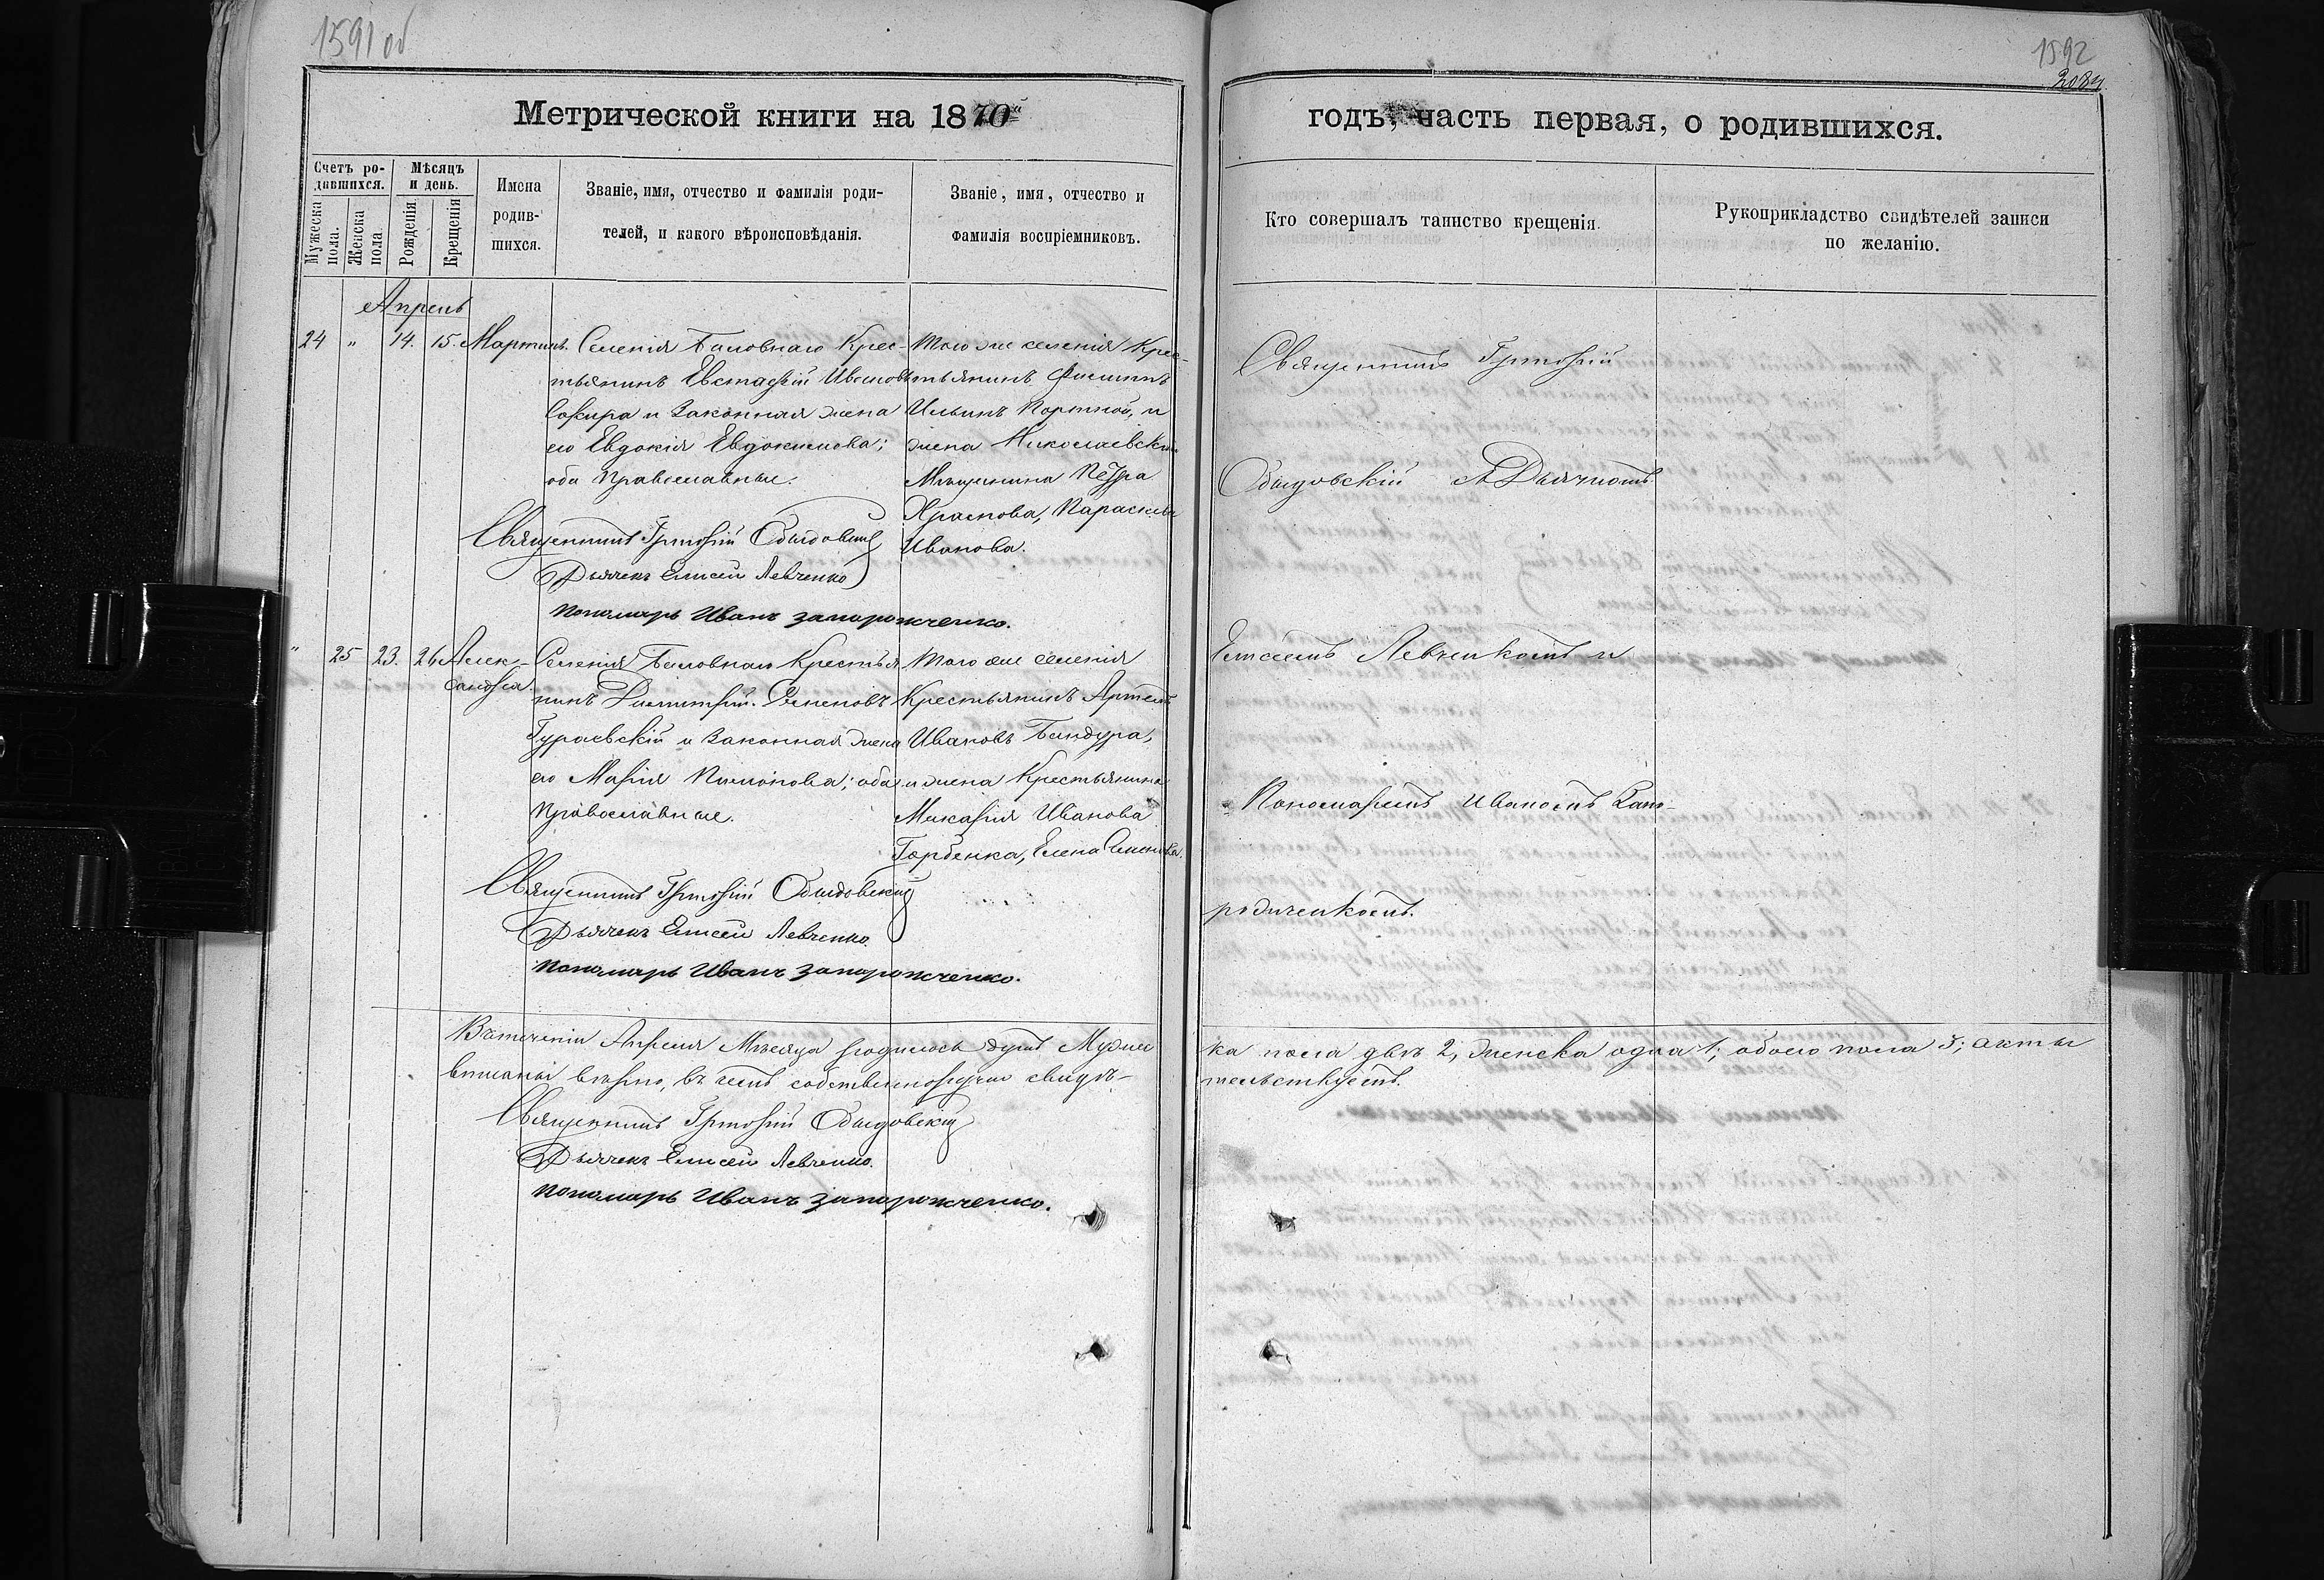 1591 об
Метрической книги на 1870
Счетъ ро-
дившихся.
Мѣсяцъ
и день.
Мужеска
пола.
Женска
пола.
Рожденія
Крещенія
Имена
родив-
шихся.
Званіе, имя, отчество и фамилія роди-
телей, и какого вѣроисповѣданія.
Званіе, имя, отчество и
фамилія воспріемниковъ.
Апрель
24 " 14. 15. Мартинъ.
Селенія Баловнаго Крес-
тьянинъ Евстафій Ивановъ
Сокира и Законная жена
его Евдокія Евдокимова;
оба Православные.
Того же селенія Крес-
тьянинъ Филиппъ
Ильинъ Портной, и
жена Николаевскаго
Мѣщанина Петра
Храпова, Параскева
Иванова.
Священникъ Григорій
Дьячекъ Елисей Левченко
Пономарь Иванъ Запорожченко.
" 25 23. 26 Алек-
сандра.
Селенія Баловнаго Крестья
нинъ Димитрій Семеновъ
Гураевскій и Законная жена
его Марія Пимонова; оба
Православные.
Того же селенія
Крестьянинъ Артемъ
Ивановъ Бандура,
и жена Крестьянина
Макарія Иванова
Горбенка, Елена Симонова.
Священникъ Григорій
Дьячекъ Елисей Левченко
Пономарь Иванъ Запорожченко.
Въ теченіи Апреля Мѣсяца родилось душъ Мужес
вписаны вѣрно, въ чемъ собственноручно свидѣ-
Священникъ Григорій
Дьячекъ Елисей Левченко.
Пономарь Иванъ Запорожченко.
1592
годъ, часть первая, о родившихся.
Кто совершалъ таинство крещенія.
Рукоприкладство свидѣтелей записи
по желанію.
Священникъ Григорій
съ Дьячкомъ
Елисеемъ Левченкомъ и
Пономаремъ Иваномъ Запо-
рожченкомъ.
ка пола два 2, женска одна 1; обоего пола 3; акты
тельствуемъ.